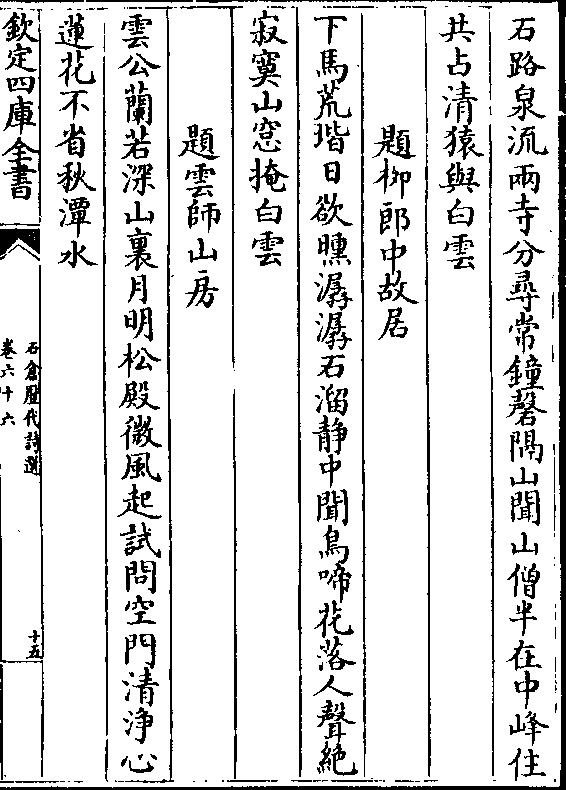 石路泉流兩寺分尋常鐘磬隔山聞山僧半在中峰住
共占清猿與白雲
題柳郎中故居
下馬荒堦日欲曛潺潺石溜静中聞鳥啼花落人聲絶
寂寞山窓掩白雲
題雲師山房
雲公蘭若深山裏月明松殿微風起試問空門清浄心
蓮花不省秋潭水
欽定四庫全書
石倉歷代詩選
卷六十六
十五